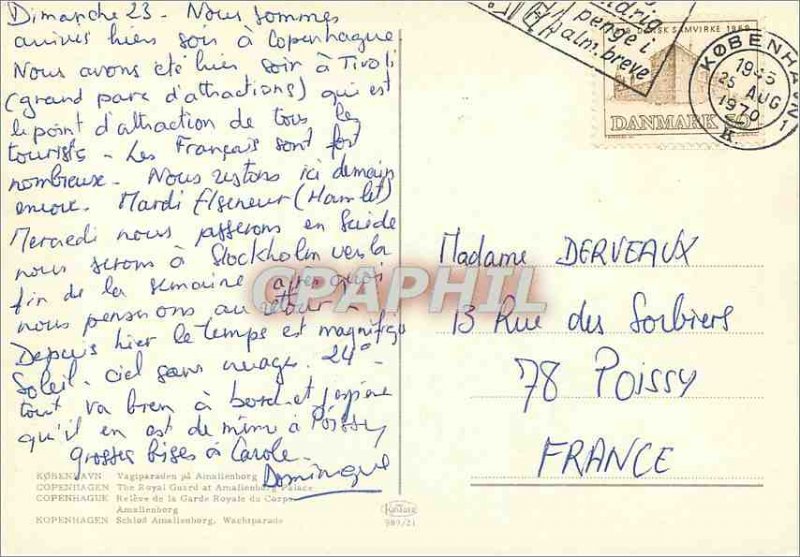 Dimanche 23 - Nous sommes
arrivés hier soir à Copenhague
Nous avons été hier soir à Tivoli
(grand parc d'attractions) qui est
le point d'attraction de tous les
touristes - Les Français sont fort
nombreux. Nous restons ici demain
encore. Mardi Elseneur (Hamlet)
Mercredi nous passerons en Suède
nous serons à Stockholm vers la
fin de la semaine après quoi
nous penserons au retour -
Depuis hier le temps est magnifique
Soleil - ciel sans nuage. 24°
tout va bien à bord et j'espère
qu'il en est de même à Poissy
grosses bises à Carole.
Dominique
KØBENHAVN Vagtparaden på Amalienborg
COPENHAGEN The Royal Guard at Amalienborg Palace
COPENHAGUE Relève de la Garde Royale du Corps
Amalienborg
KOPENHAGEN Schloß Amalienborg. Wachtparade
989/21
penge i
alm. breve
DANSK SAMVIRKE 1969
DANMARK
KØBENHAVN 1
25 AUG
1970
K.
Madame DERVEAUX
13 Rue des Sorbiers
78 Poissy
FRANCE
CPAPHIL